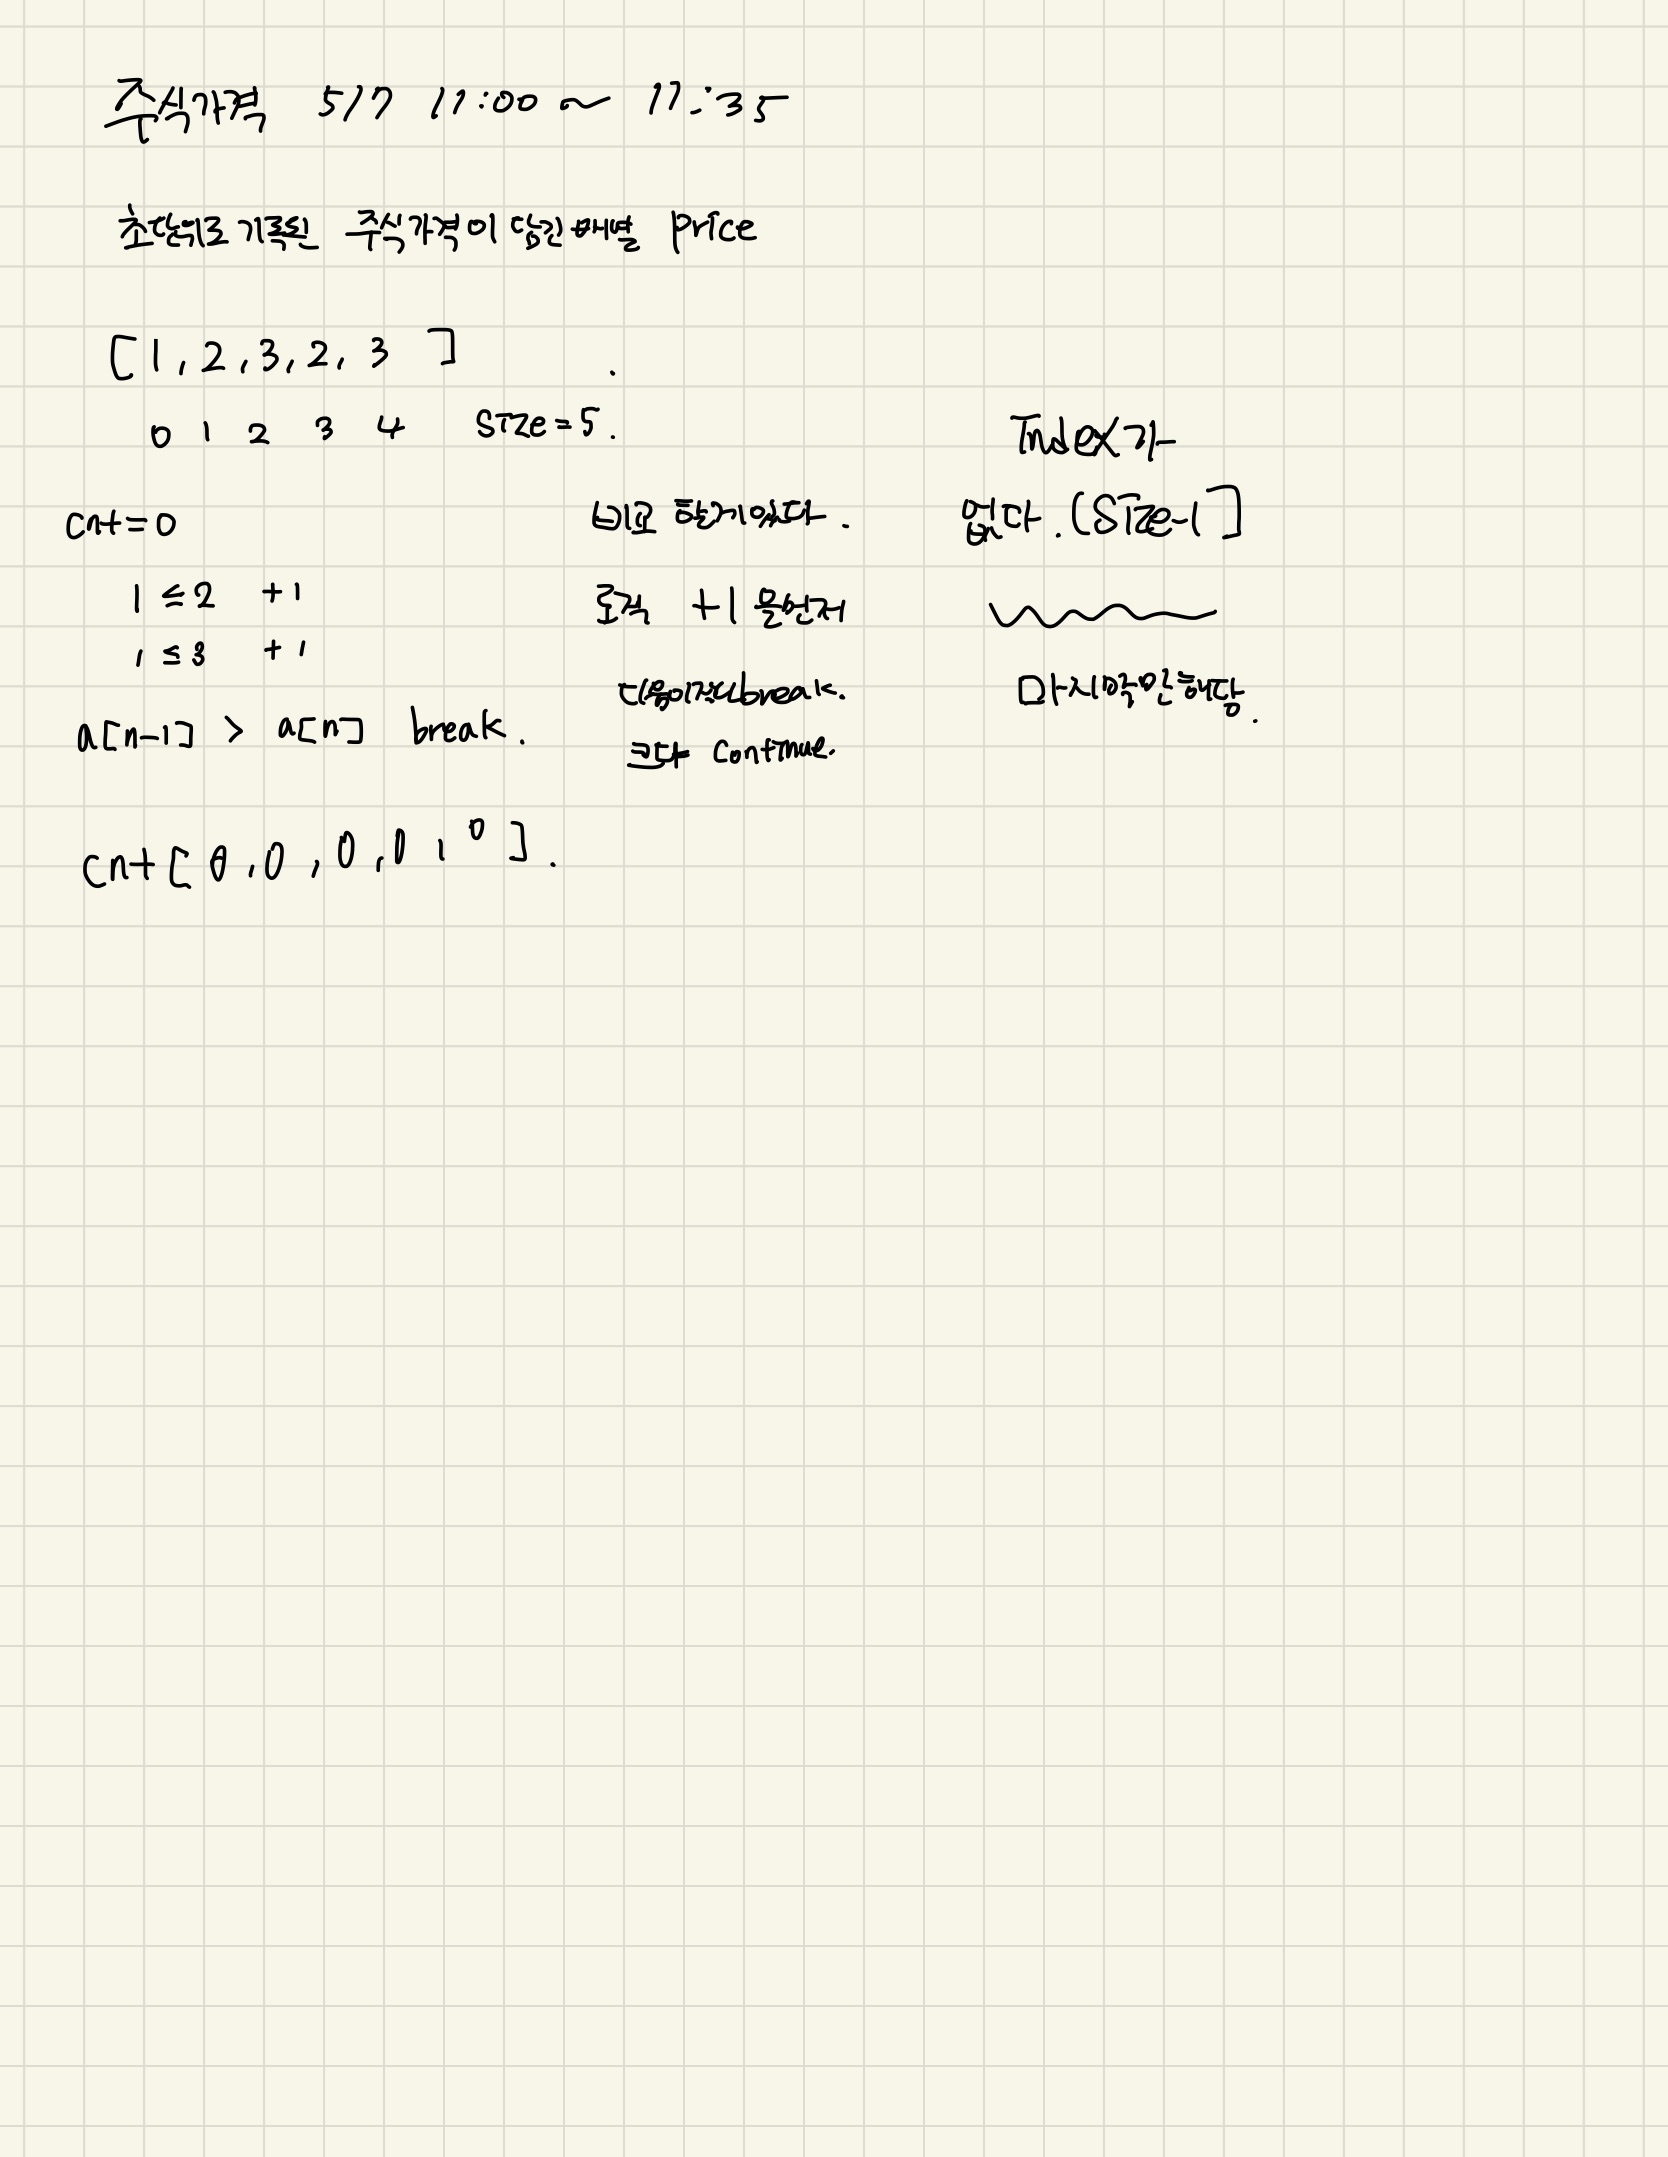 주식가격 5/7 11:00 ~ 11:35
초단위로 기록된 주식가격이 담긴 배열 price
[1, 2, 3, 2, 3 ]
0 1 2 3 4 size = 5.
cnt = 0
1 ≤ 2 +1
1 ≤ 3 +1
a[n-1] > a[n] break.
cnt [ 0, 0, 0, 0, 0 ].
비교 할게있다.
로직 +1 을먼저
다음이작다break.
크다 continue.
Index가
없다. [size-1]
마지막만해당.